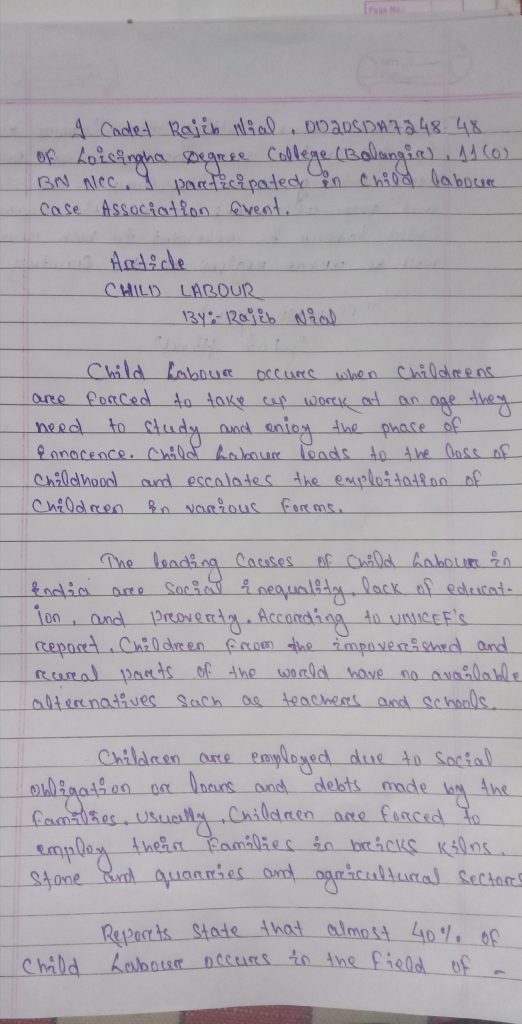 Page No.
I Cadet Rajib Nial, OD20SDA7248 48
of Loisingha Degree College (Balangir), 11(O)
BN NCC. I participated in child labour
Case Association Event.
Article
CHILD LABOUR
BY:- Rajib Nial
Child Labour occurs when childrens
are forced to take up work at an age they
need to study and enjoy the phase of
innocence. Child Labour leads to the loss of
childhood and escalates the exploitation of
children in various forms.
The leading causes of child Labour in
india are social inequality, lack of educat-
ion, and proverty. According to UNICEF's
report, Children from the impoverished and
rural parts of the world have no available
alternatives such as teachers and schools.
Children are employed due to social
obligation or loans and debts made by the
families. Usually, Children are forced to
employ their families in bricks kilns,
stone and quarries and agricultural sectors
Reports state that almost 40% of
child Labour occurs in the field of -